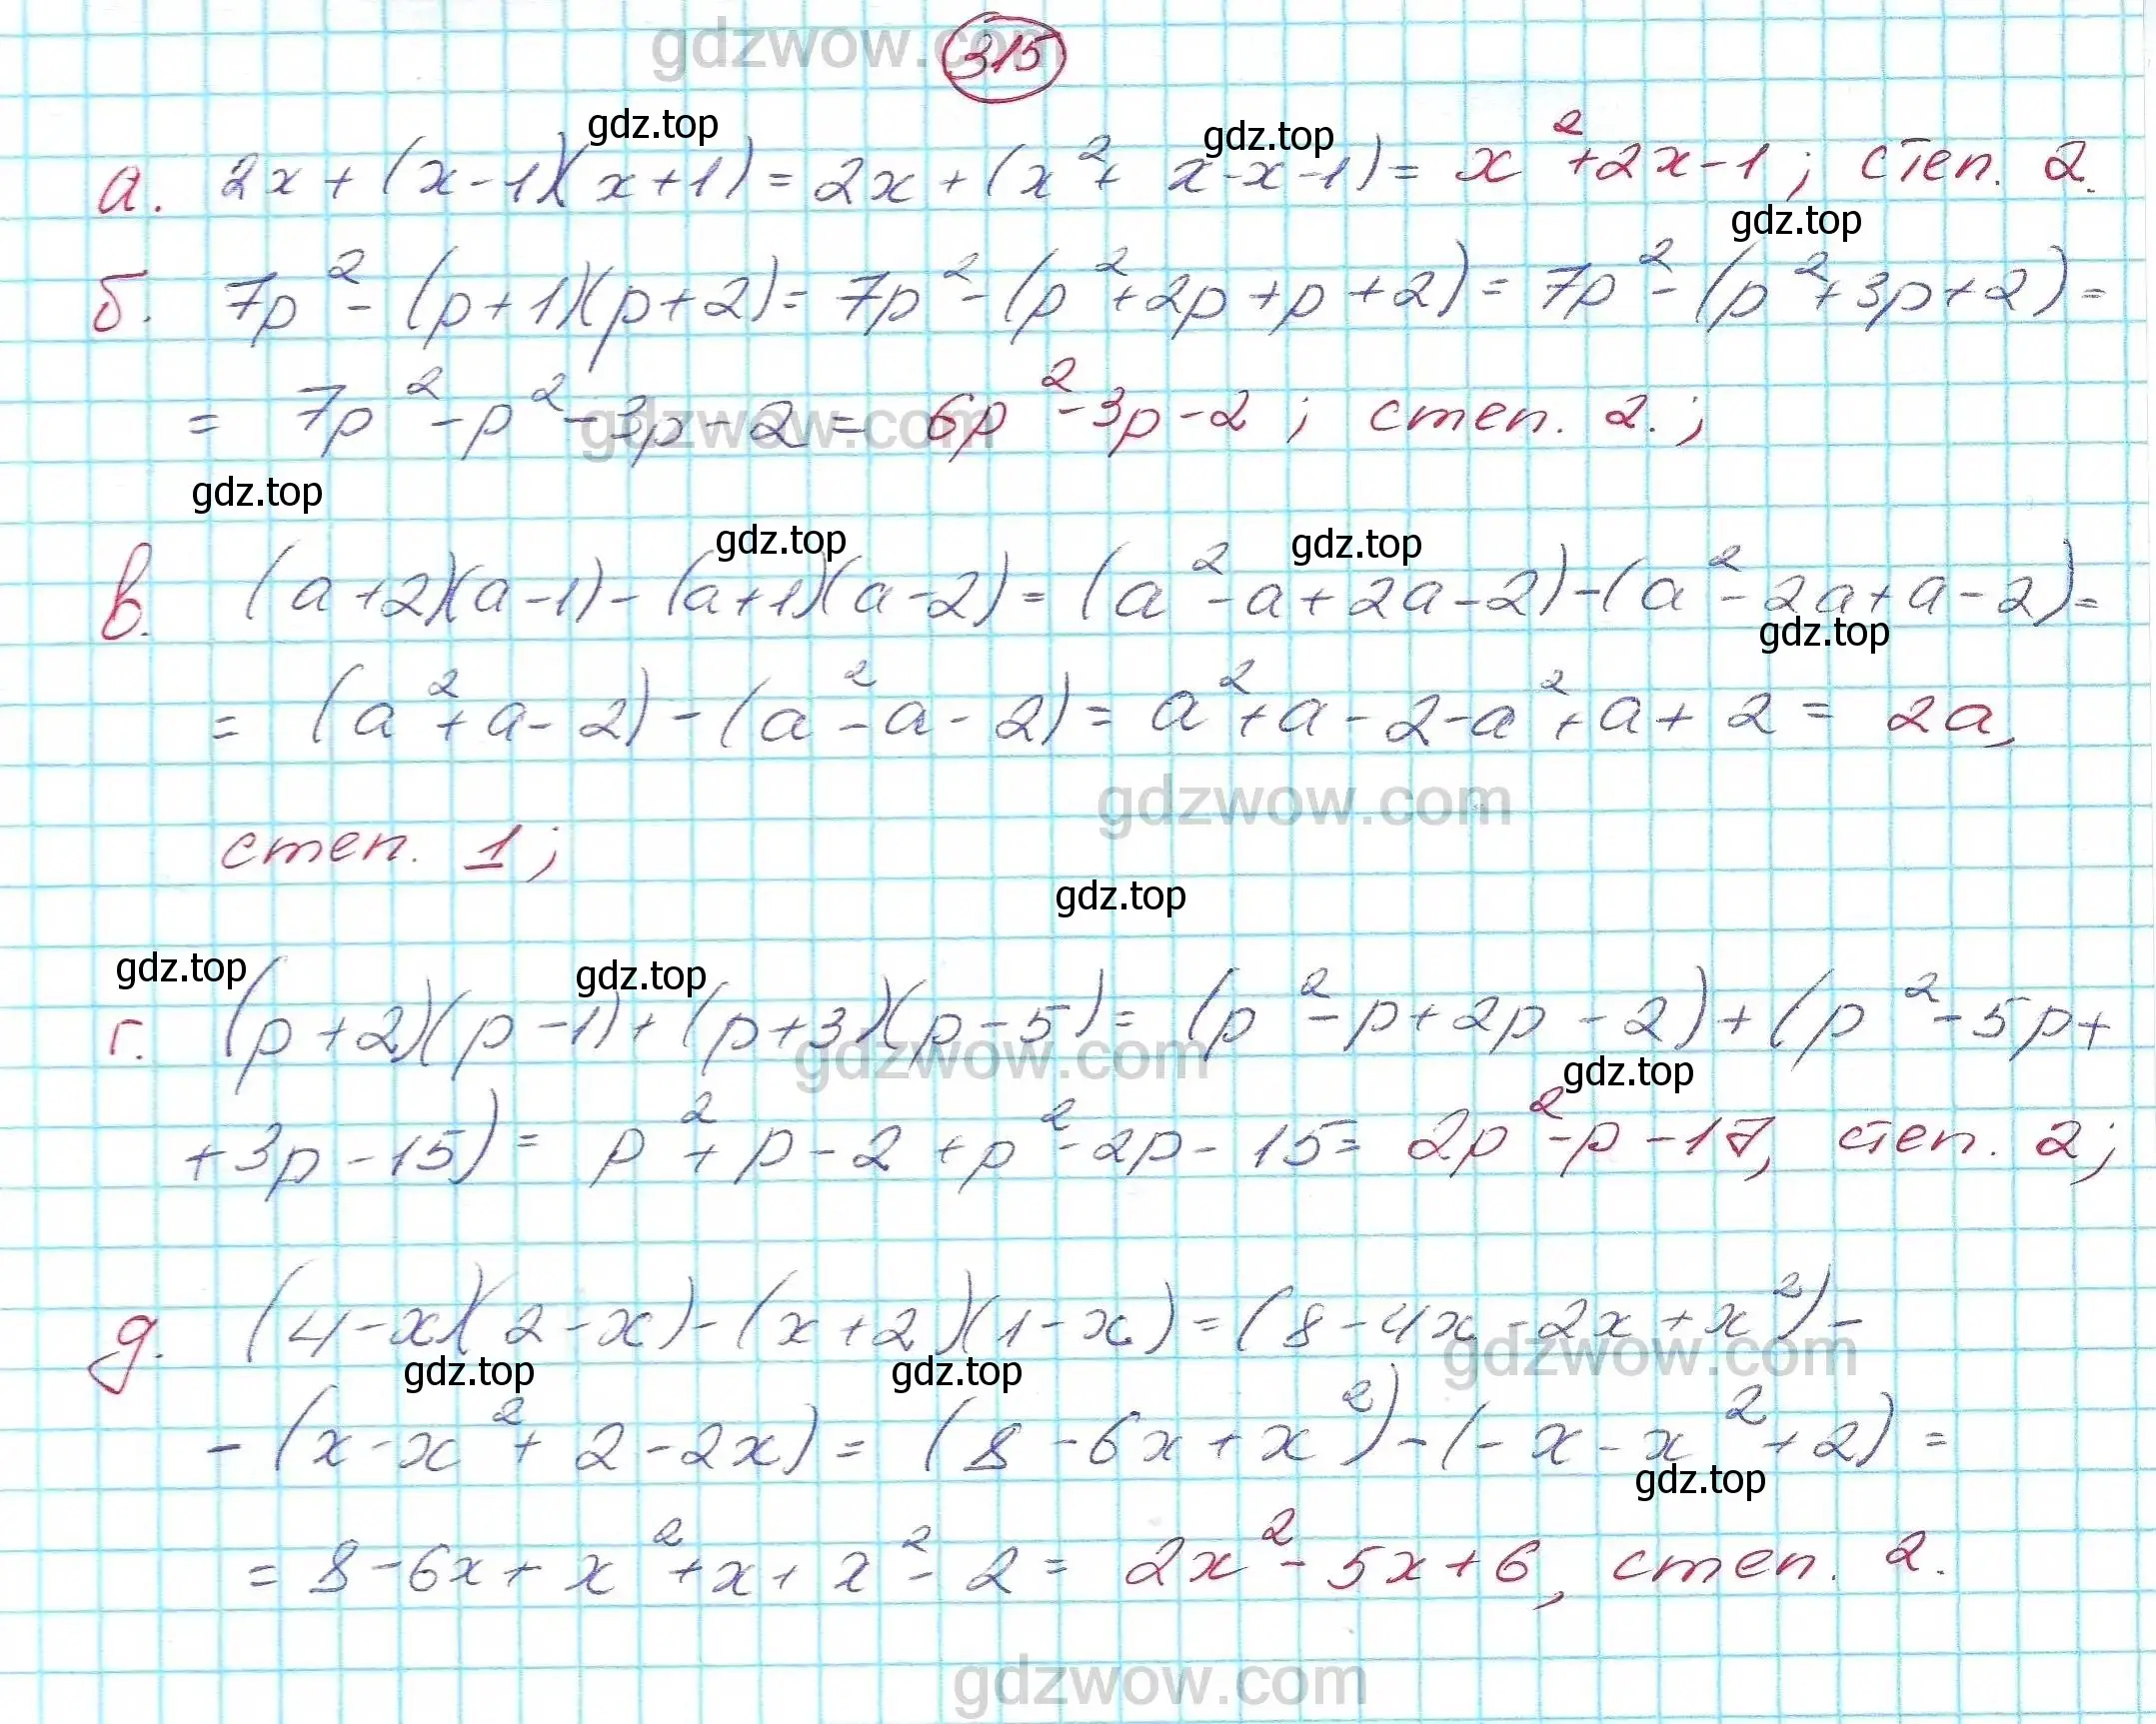 gdzwow.com
315
gdz.top gdz.top
а. 2x + (x-1)(x+1) = 2x + (x² + x - x - 1) = x² + 2x - 1; степ. 2.
gdz.top
б. 7p² - (p+1)(p+2) = 7p² - (p² + 2p + p + 2) = 7p² - (p² + 3p + 2) =
= 7p² - p² - 3p - 2 = 6p² - 3p - 2; степ. 2.;
gdzwow.com
gdz.top
gdz.top gdz.top
в. (a+2)(a-1) - (a+1)(a-2) = (a² - a + 2a - 2) - (a² - 2a + a - 2) =
gdz.top
= (a² + a - 2) - (a² - a - 2) = a² + a - 2 - a² + a + 2 = 2a,
gdzwow.com
степ. 1;
gdz.top
gdz.top gdz.top
г. (p+2)(p-1) + (p+3)(p-5) = (p² - p + 2p - 2) + (p² - 5p +
gdzwow.com
gdz.top
+ 3p - 15) = p² + p - 2 + p² - 2p - 15 = 2p² - p - 17, степ. 2;
д. (4-x)(2-x) - (x+2)(1-x) = (8 - 4x - 2x + x²) -
gdzwow.com
gdz.top gdz.top
- (x - x² + 2 - 2x) = (8 - 6x + x²) - (-x - x² + 2) =
gdz.top
= 8 - 6x + x² + x + x² - 2 = 2x² - 5x + 6, степ. 2.
gdzwow.com